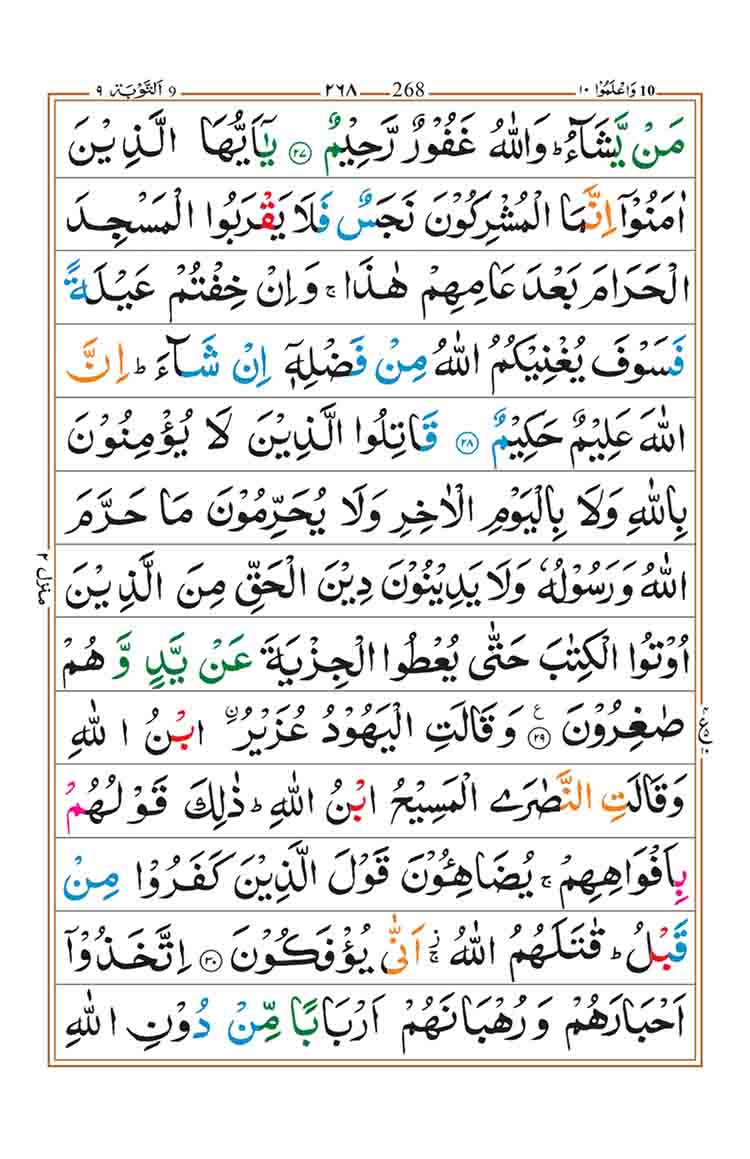 10 وَاعْلَمُوْا ١٠ 268 ٢٦٨ 9 اَلتَّوْبَة ٩
مَنْ يَّشَآءُ ؕ وَاللّٰهُ غَفُوْرٌ رَّحِيْمٌ ۝۲۷ يٰۤاَيُّهَا الَّذِيْنَ
اٰمَنُوْۤا اِنَّمَا الْمُشْرِكُوْنَ نَجَسٌ فَلَا يَقْرَبُوا الْمَسْجِدَ
الْحَرَامَ بَعْدَ عَامِهِمْ هٰذَا ۚ وَاِنْ خِفْتُمْ عَيْلَةً
فَسَوْفَ يُغْنِيْكُمُ اللّٰهُ مِنْ فَضْلِهٖۤ اِنْ شَآءَ ؕ اِنَّ
اللّٰهَ عَلِيْمٌ حَكِيْمٌ ۝۲۸ قَاتِلُوا الَّذِيْنَ لَا يُؤْمِنُوْنَ
بِاللّٰهِ وَلَا بِالْيَوْمِ الْاٰخِرِ وَلَا يُحَرِّمُوْنَ مَا حَرَّمَ
اللّٰهُ وَرَسُوْلُهٗ وَلَا يَدِيْنُوْنَ دِيْنَ الْحَقِّ مِنَ الَّذِيْنَ
اُوْتُوا الْكِتٰبَ حَتّٰى يُعْطُوا الْجِزْيَةَ عَنْ يَّدٍ وَّ هُمْ
صٰغِرُوْنَ ۝۲۹ ع وَقَالَتِ الْيَهُوْدُ عُزَيْرُ ۨ ابْنُ اللّٰهِ
وَقَالَتِ النَّصٰرَى الْمَسِيْحُ ابْنُ اللّٰهِ ؕ ذٰلِكَ قَوْلُهُمْ
بِاَفْوَاهِهِمْ ۚ يُضَاهِئُوْنَ قَوْلَ الَّذِيْنَ كَفَرُوْا مِنْ
قَبْلُ ؕ قٰتَلَهُمُ اللّٰهُ ۚ اَنّٰى يُؤْفَكُوْنَ ۝۳۰ اِتَّخَذُوْۤا
اَحْبَارَهُمْ وَرُهْبَانَهُمْ اَرْبَابًا مِّنْ دُوْنِ اللّٰهِ
منزل ٢